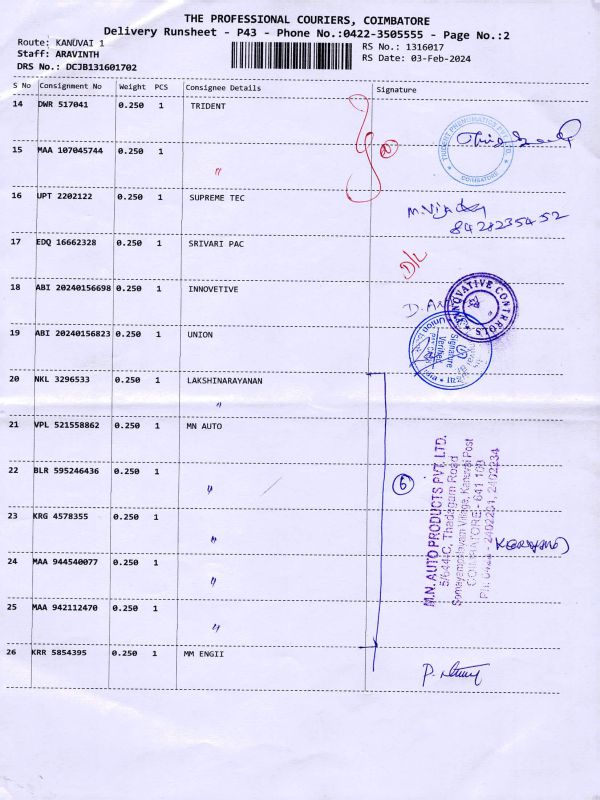 THE PROFESSIONAL COURIERS, COIMBATORE
Delivery Runsheet - P43 - Phone No.:0422-3505555 - Page No.:2
Route: KANUVAI 1
Staff: ARAVINTH
DRS No.: DCJB131601702
RS No.: 1316017
RS Date: 03-Feb-2024
S No Consignment No Weight PCS Consignee Details Signature
14 DWR 517041 0.250 1 TRIDENT
TRIDENT PNEUMATICS PVT. LTD. COIMBATORE
15 MAA 107045744 0.250 1 "
16 UPT 2202122 0.250 1 SUPREME TEC
8428235452
17 EDQ 16662328 0.250 1 SRIVARI PAC
D/L
18 ABI 20240156698 0.250 1 INNOVETIVE
INNOVATIVE CONTROLS
19 ABI 20240156823 0.250 1 UNION
Signature
Verified
20 NKL 3296533 0.250 1 LAKSHINARAYANAN
"
21 VPL 521558862 0.250 1 MN AUTO
22 BLR 595246436 0.250 1 "
23 KRG 4578355 0.250 1 "
24 MAA 944540077 0.250 1 "
25 MAA 942112470 0.250 1 "
6
M.N. AUTO PRODUCTS PVT. LTD.
5/644-C, Thadagam Road
Somayampalayam Village, Kanuvai Post
COIMBATORE - 641 108
26 KRR 5854395 0.250 1 MM ENGII